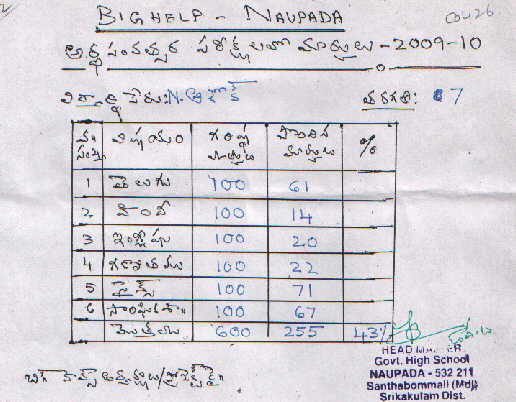 BIGHELP - NAUPADA
అర్ధ సంవత్సర పరీక్షలలో మార్కులు - 2009-10
విద్యార్థి పేరు: N. అశోక్ తరగతి: 7
వ. సంఖ్య విషయం గరిష్ఠ మార్కులు పొందిన మార్కులు %
1 తెలుగు 100 61
2 హిందీ 100 14
3 ఇంగ్లీషు 100 20
4 గణితము 100 22
5 సైన్స్ 100 71
6 సాంఘీక శా 100 67
మొత్తము 600 255 43%
HEAD MASTER
Govt. High School
NAUPADA - 532 211
Santhabommali (Mdl)
Srikakulam Dist.